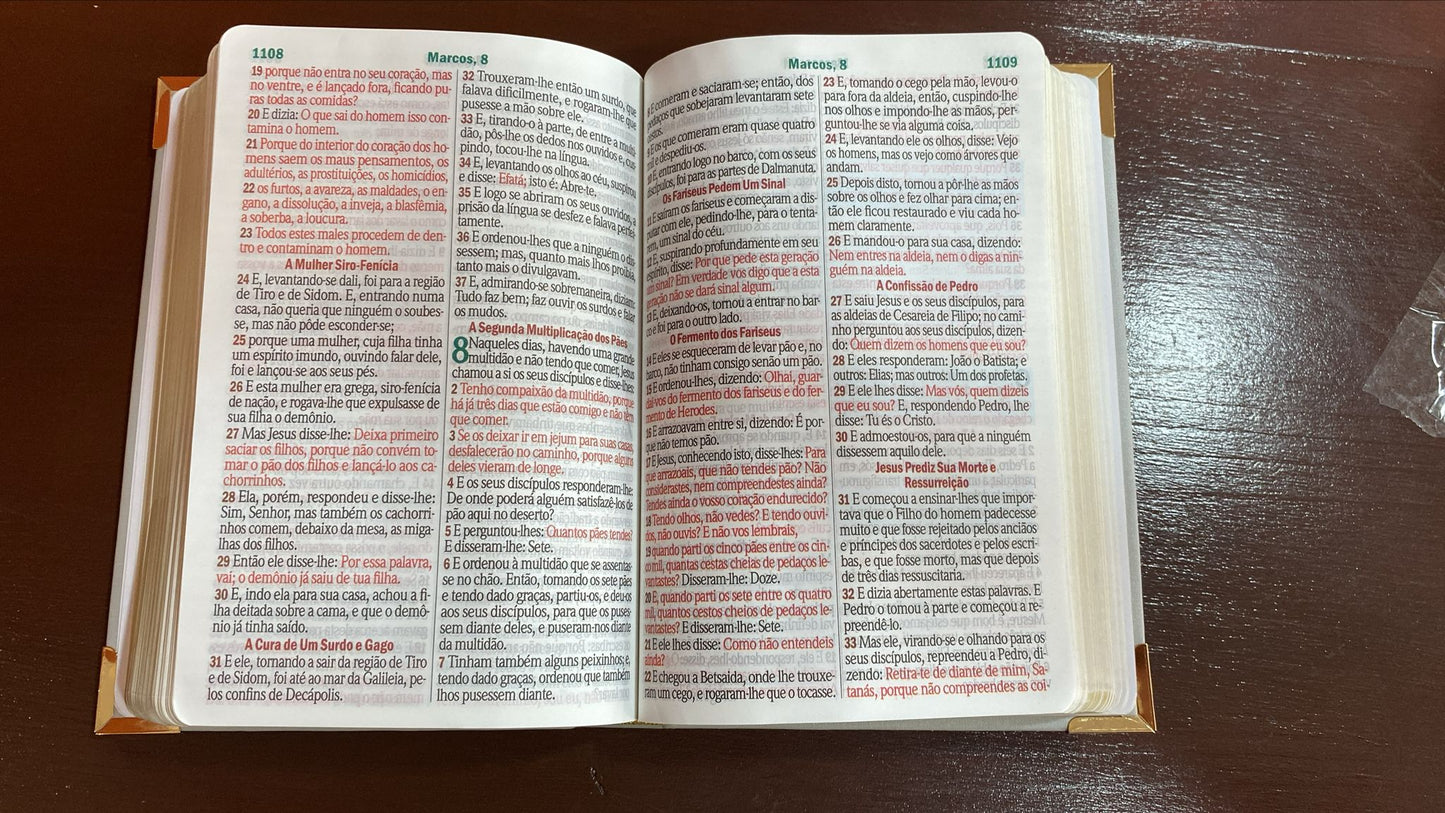 1108
Marcos, 8
19 porque não entra no seu coração, mas
no ventre, e é lançado fora, ficando pu-
ras todas as comidas?
20 E dizia: O que sai do homem isso con-
tamina o homem.
21 Porque do interior do coração dos ho-
mens saem os maus pensamentos, os
adultérios, as prostituições, os homicídios,
22 os furtos, a avareza, as maldades, o en-
gano, a dissolução, a inveja, a blasfêmia,
a soberba, a loucura.
23 Todos estes males procedem de den-
tro e contaminam o homem.
A Mulher Siro-Fenícia
24 E, levantando-se dali, foi para a região
de Tiro e de Sidom. E, entrando numa
casa, não queria que ninguém o soubes-
se, mas não pôde esconder-se;
25 porque uma mulher, cuja filha tinha
um espírito imundo, ouvindo falar dele,
foi e lançou-se aos seus pés.
26 E esta mulher era grega, siro-fenícia
de nação, e rogava-lhe que expulsasse de
sua filha o demônio.
27 Mas Jesus disse-lhe: Deixa primeiro
saciar os filhos, porque não convém to-
mar o pão dos filhos e lançá-lo aos ca-
chorrinhos.
28 Ela, porém, respondeu e disse-lhe:
Sim, Senhor, mas também os cachorri-
nhos comem, debaixo da mesa, as miga-
lhas dos filhos.
29 Então ele disse-lhe: Por essa palavra,
vai; o demônio já saiu de tua filha.
30 E, indo ela para sua casa, achou a fi-
lha deitada sobre a cama, e que o demô-
nio já tinha saído.
A Cura de Um Surdo e Gago
31 E ele, tornando a sair da região de Tiro
e de Sidom, foi até ao mar da Galileia, pe-
los confins de Decápolis.
32 Trouxeram-lhe então um surdo, que
falava dificilmente, e rogaram-lhe que
pusesse a mão sobre ele.
33 E, tirando-o à parte, de entre a multi-
dão, pôs-lhe os dedos nos ouvidos e, cus-
pindo, tocou-lhe na língua.
34 E, levantando os olhos ao céu, suspirou
e disse: Efatá; isto é: Abre-te.
35 E logo se abriram os seus ouvidos, a
prisão da língua se desfez e falava perfei-
tamente.
36 E ordenou-lhes que a ninguém o dis-
sessem; mas, quanto mais lhos proibia,
tanto mais o divulgavam.
37 E, admirando-se sobremaneira, diziam:
Tudo faz bem; faz ouvir os surdos e falar
os mudos.
A Segunda Multiplicação dos Pães
8 Naqueles dias, havendo uma grande
multidão e não tendo que comer, Jesus
chamou a si os seus discípulos e disse-lhes:
2 Tenho compaixão da multidão, porque
há já três dias que estão comigo e não têm
que comer.
3 Se os deixar ir em jejum para suas casas,
desfalecerão no caminho, porque alguns
deles vieram de longe.
4 E os seus discípulos responderam-lhe:
De onde poderá alguém satisfazê-los de
pão aqui no deserto?
5 E perguntou-lhes: Quantos pães tendes?
E disseram-lhe: Sete.
6 E ordenou à multidão que se assentas-
se no chão. Então, tomando os sete pães
e tendo dado graças, partiu-os, e deu-os
aos seus discípulos, para que os puses-
sem diante deles, e puseram-nos diante
da multidão.
7 Tinham também alguns peixinhos; e,
tendo dado graças, ordenou que também
lhos pusessem diante.
Marcos, 8
1109
E comeram e saciaram-se; então, dos
pedaços que sobejaram levantaram sete
cestos.
E os que comeram eram quase quatro
mil e despediu-os.
E, entrando logo no barco, com os seus
discípulos, foi para as partes de Dalmanuta.
Os Fariseus Pedem Um Sinal
11 E saíram os fariseus e começaram a dis-
putar com ele, pedindo-lhe, para o tenta-
rem, um sinal do céu.
12 E, suspirando profundamente em seu
espírito, disse: Por que pede esta geração
um sinal? Em verdade vos digo que a esta
geração não se dará sinal algum.
13 E, deixando-os, tornou a entrar no bar-
co e foi para o outro lado.
O Fermento dos Fariseus
14 E eles se esqueceram de levar pão e, no
barco, não tinham consigo senão um pão.
15 E ordenou-lhes, dizendo: Olhai, guar-
dai-vos do fermento dos fariseus e do fer-
mento de Herodes.
16 E arrazoavam entre si, dizendo: É por-
que não temos pão.
17 E Jesus, conhecendo isto, disse-lhes: Para
que arrazoais, que não tendes pão? Não
considerastes, nem compreendestes ainda?
Tendes ainda o vosso coração endurecido?
18 Tendo olhos, não vedes? E tendo ouvi-
dos, não ouvis? E não vos lembrais,
19 quando parti os cinco pães entre os cin-
co mil, quantas cestas cheias de pedaços le-
vantastes? Disseram-lhe: Doze.
20 E, quando parti os sete entre os quatro
mil, quantos cestos cheios de pedaços le-
vantastes? E disseram-lhe: Sete.
21 E ele lhes disse: Como não entendeis
ainda?
22 E chegou a Betsaida, onde lhe trouxe-
ram um cego, e rogaram-lhe que o tocasse.
23 E, tomando o cego pela mão, levou-o
para fora da aldeia, então, cuspindo-lhe
nos olhos e impondo-lhe as mãos, per-
guntou-lhe se via alguma coisa.
24 E, levantando ele os olhos, disse: Vejo
os homens, mas os vejo como árvores que
andam.
25 Depois disto, tornou a pôr-lhe as mãos
sobre os olhos e fez olhar para cima; en-
tão ele ficou restaurado e viu cada ho-
mem claramente.
26 E mandou-o para sua casa, dizendo:
Nem entres na aldeia, nem o digas a nin-
guém na aldeia.
A Confissão de Pedro
27 E saiu Jesus e os seus discípulos, para
as aldeias de Cesareia de Filipo; no cami-
nho perguntou aos seus discípulos, dizen-
do: Quem dizem os homens que eu sou?
28 E eles responderam: João o Batista; e
outros: Elias; mas outros: Um dos profetas.
29 E ele lhes disse: Mas vós, quem dizeis
que eu sou? E, respondendo Pedro, lhe
disse: Tu és o Cristo.
30 E admoestou-os, para que a ninguém
dissessem aquilo dele.
Jesus Prediz Sua Morte e
Ressurreição
31 E começou a ensinar-lhes que impor-
tava que o Filho do homem padecesse
muito e que fosse rejeitado pelos anciãos
e príncipes dos sacerdotes e pelos escri-
bas, e que fosse morto, mas que depois
de três dias ressuscitaria.
32 E dizia abertamente estas palavras. E
Pedro o tomou à parte e começou a re-
preendê-lo.
33 Mas ele, virando-se e olhando para os
seus discípulos, repreendeu a Pedro, di-
zendo: Retira-te de diante de mim, Sa-
tanás, porque não compreendes as coi-